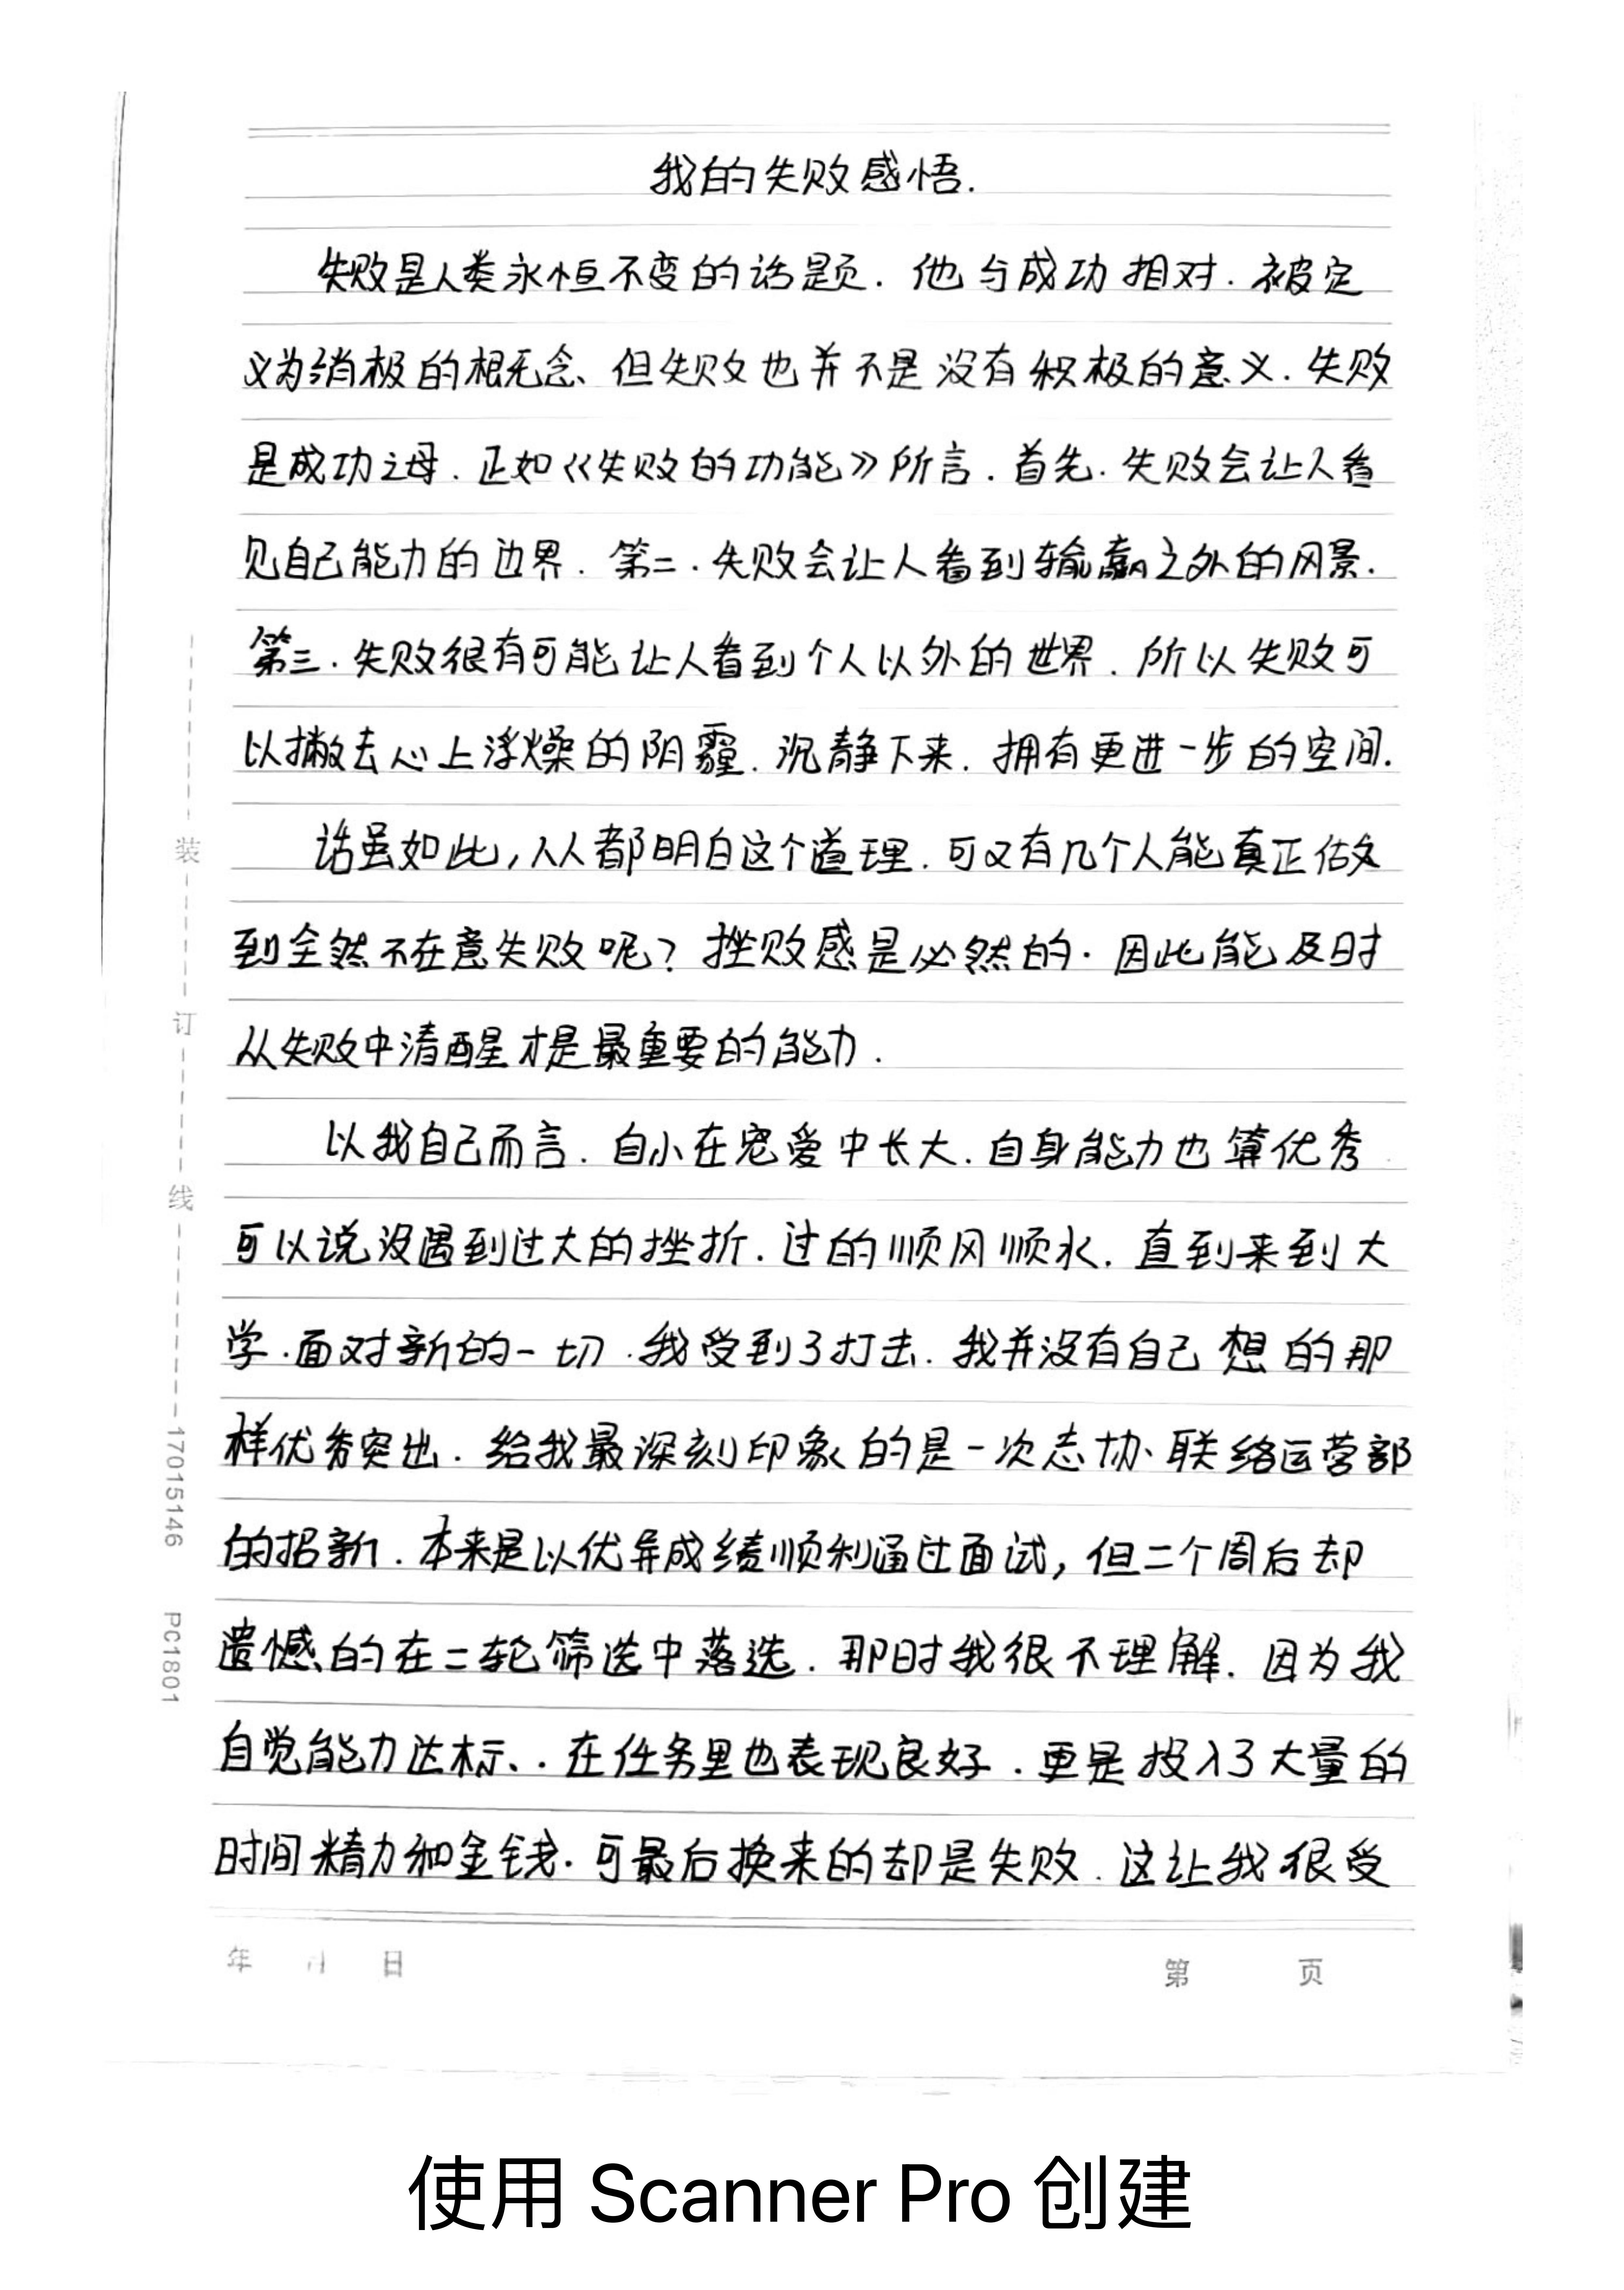 我的失败感悟.
失败是人类永恒不变的话题. 他与成功相对. 被定
义为消极的概念、但失败也并不是没有积极的意义. 失败
是成功之母. 正如《失败的功能》所言. 首先. 失败会让人看
见自己能力的边界. 第二. 失败会让人看到输赢之外的风景.
第三. 失败很有可能让人看到个人以外的世界. 所以失败可
以撇去心上浮燥的阴霾. 沉静下来. 拥有更进一步的空间.
话虽如此, 人人都明白这个道理. 可又有几个人能真正做
到全然不在意失败呢? 挫败感是必然的. 因此能及时
从失败中清醒才是最重要的能力.
以我自己而言. 自小在宠爱中长大. 自身能力也算优秀
可以说没遇到过大的挫折. 过的顺风顺水. 直到来到大
学. 面对新的一切. 我受到了打击. 我并没有自己想的那
样优秀突出. 给我最深刻印象的是一次志协、联络运营部
的招新. 本来是以优异成绩顺利通过面试, 但二个周后却
遗憾的在二轮筛选中落选. 那时我很不理解. 因为我
自觉能力达标、. 在任务里也表现良好. 更是投入了大量的
时间精力和金钱. 可最后换来的却是失败. 这让我很受
装
订
线
17015146 PC1801
年 月 日 第 页
使用 Scanner Pro 创建